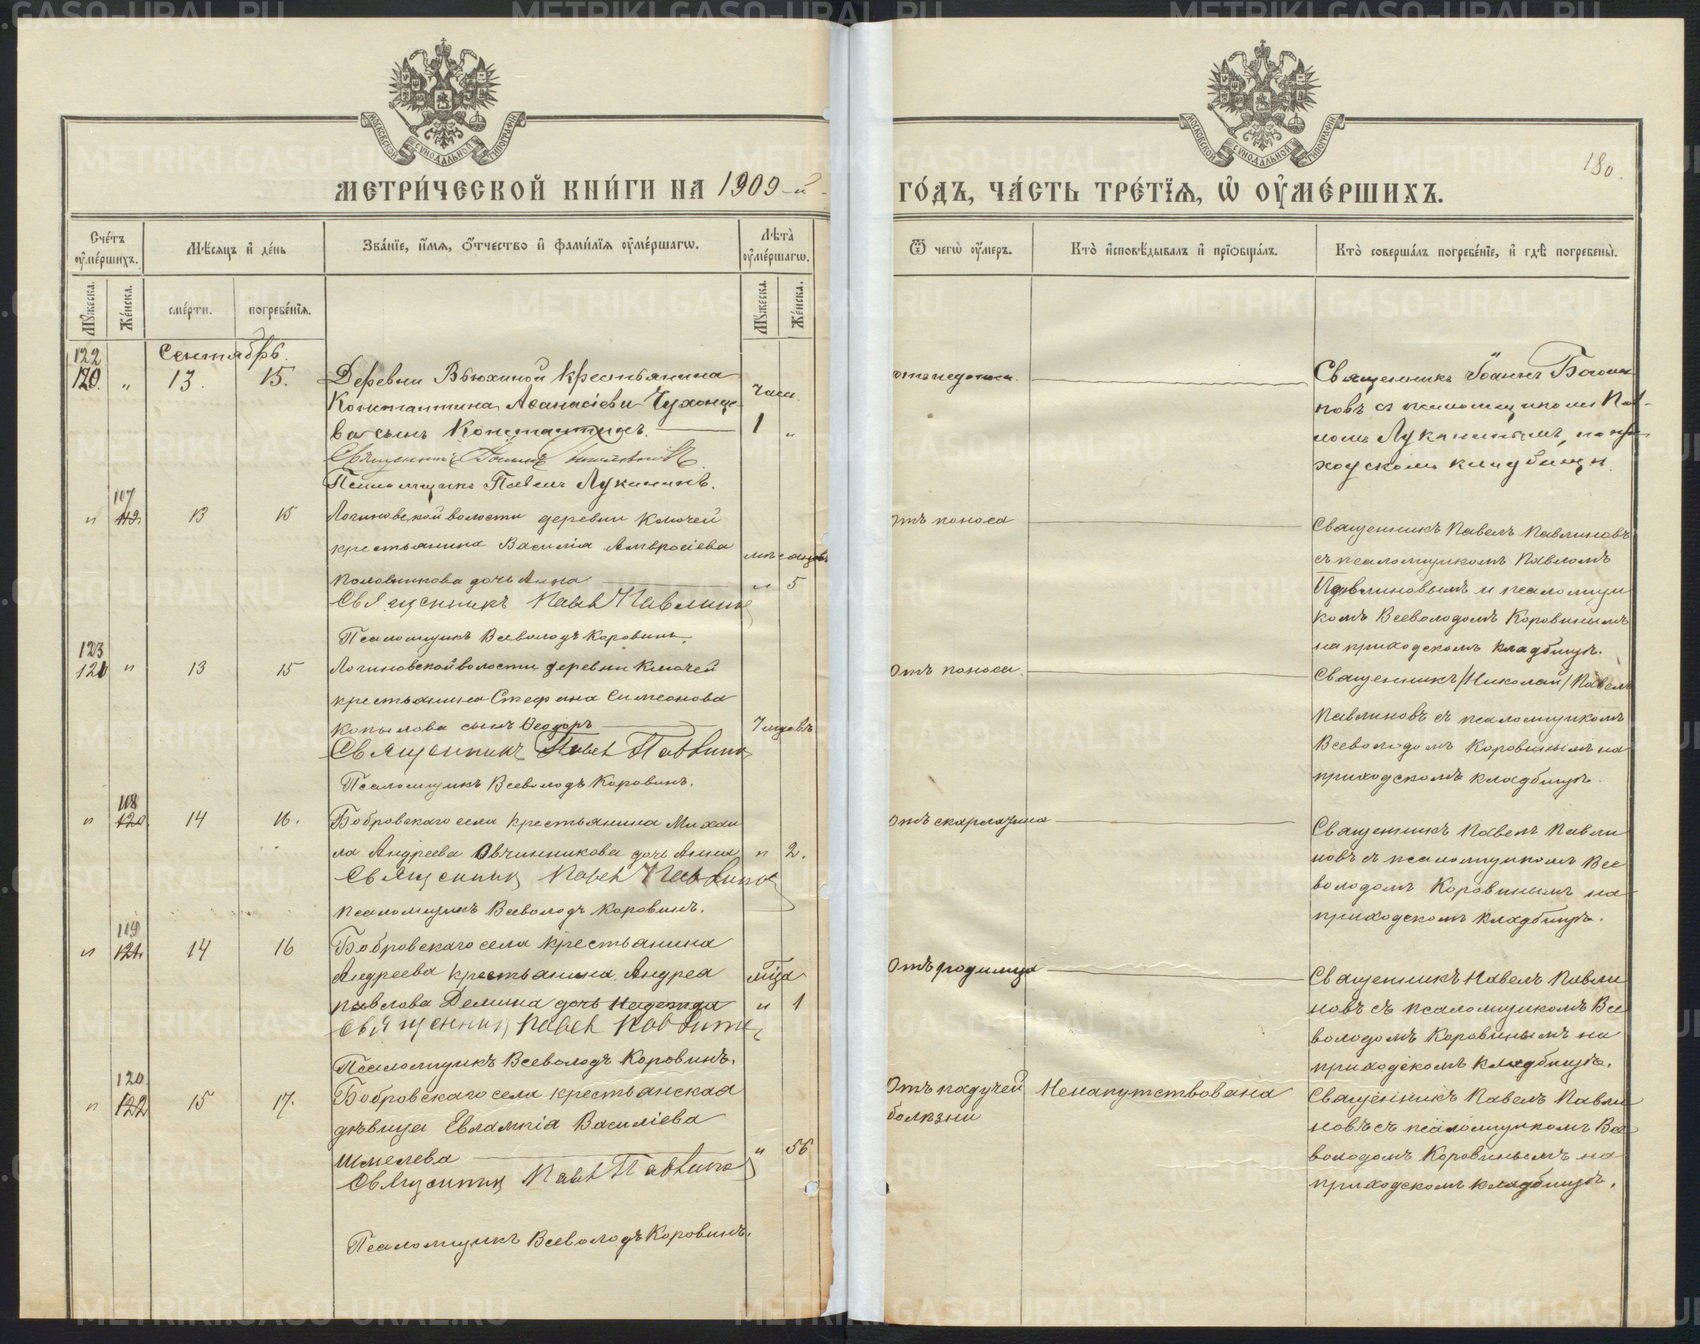 МЕТРИ́ЧЕСКОЙ КНИ́ГИ НА 1909-й
ГО́ДЪ, ЧА́СТЬ ТРЕ́ТЇѦ, Ѿ ОУ҆МЕ́РШИХЪ.
180.
Счетъ оумершихъ.
Мѣсяцъ и день
Званїе, имя, отчество и фамилїя оумершагѡ.
Лѣта оумершагѡ.
Ѿ чегѡ оумеръ.
Кто исповѣдывалъ и прїобщалъ.
Кто совершалъ погребенїе, и гдѣ погребены.
Мужеска.
Женска.
смерти.
погребенїя.
Мужеска.
Женска.
Сентябрь.
122
120. " 13. 15.
Деревни Вьюхиной крестьянина
Константина Аѳанасіева
сынъ Константинъ.
часа.
1 "
Священникъ Іоаннъ
Псаломщикъ Павелъ Луканинъ.
Священникъ Іоаннъ
новъ съ псаломщикомъ Пав-
ломъ Луканинымъ, на при-
ходскомъ кладбищѣ.
117
" 119. 13 15
Логиновской волости деревни Ключей
крестьянина Василія Амвросіева
Половникова дочь Анна
мѣсяцовъ
" 5
Священникъ Павелъ Павлиновъ
Псаломщикъ Всеволодъ Коровинъ.
отъ поноса
Священникъ Павелъ Павлиновъ
съ псаломщикомъ Павломъ
Павлиновымъ и псаломщи
комъ Всеволодомъ Коровинымъ
на приходскомъ кладбищѣ.
123
121 " 13 15
Логиновской волости деревни Ключей
крестьянина Стефана Симеонова
Копылова сынъ Ѳеодоръ
7 годовъ
Священникъ Павелъ Павлиновъ
Псаломщикъ Всеволодъ Коровинъ.
Отъ поноса
Священникъ /Николай/ Павелъ
Павлиновъ съ псаломщикомъ
Всеволодомъ Коровинымъ на
приходскомъ кладбищѣ.
118
" 120. 14 16.
Бобровскаго села крестьянина Михаи
ла Андреева Овчинникова дочь Анна
" 2.
Священникъ Павелъ Павлиновъ
Псаломщикъ Всеволодъ Коровинъ.
Отъ скарлатина
Священникъ Павелъ Павли
новъ съ псаломщикомъ Все
володомъ Коровинымъ на
приходскомъ кладбищѣ.
119
" 121. 14 16
Бобровскаго села крестьянина
Андреева крестьянина Андрея
Павлова Демина дочь Надежда
мѣца
" 1
Священникъ Павелъ Павлиновъ
Псаломщикъ Всеволодъ Коровинъ.
Отъ родимца
Священникъ Павелъ Павли
новъ съ псаломщикомъ Все
володомъ Коровинымъ на
приходскомъ кладбищѣ.
120
" 122 15 17.
Бобровскаго села крестьянская
дѣвица Евлампія Василіева
Шмелева
" 56
Священникъ Павелъ Павлиновъ
Псаломщикъ Всеволодъ Коровинъ.
Отъ падучей
болѣзни
Ненапутствована
Священникъ Павелъ Павли
новъ съ псаломщикомъ Все
володомъ Коровинымъ на
приходскомъ кладбищѣ.
METRIKI.GASO-URAL.RU